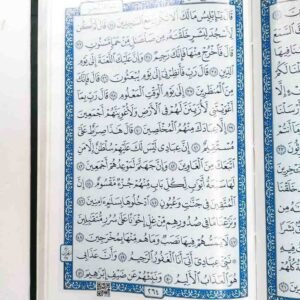 قَالَ يَٰٓإِبْلِيسُ مَا لَكَ أَلَّا تَكُونَ مَعَ ٱلسَّٰجِدِينَ ٣٢ قَالَ لَمْ أَكُن
لِّأَسْجُدَ لِبَشَرٍ خَلَقْتَهُۥ مِن صَلْصَٰلٍ مِّنْ حَمَإٍ مَّسْنُونٍ ٣٣
قَالَ فَٱخْرُجْ مِنْهَا فَإِنَّكَ رَجِيمٌ ٣٤ وَإِنَّ عَلَيْكَ ٱللَّعْنَةَ إِلَىٰ يَوْمِ
ٱلدِّينِ ٣٥ قَالَ رَبِّ فَأَنظِرْنِىٓ إِلَىٰ يَوْمِ يُبْعَثُونَ ٣٦ قَالَ فَإِنَّكَ مِنَ
ٱلْمُنظَرِينَ ٣٧ إِلَىٰ يَوْمِ ٱلْوَقْتِ ٱلْمَعْلُومِ ٣٨ قَالَ رَبِّ بِمَآ
أَغْوَيْتَنِى لَأُزَيِّنَنَّ لَهُمْ فِى ٱلْأَرْضِ وَلَأُغْوِيَنَّهُمْ أَجْمَعِينَ ٣٩
إِلَّا عِبَادَكَ مِنْهُمُ ٱلْمُخْلَصِينَ ٤٠ قَالَ هَٰذَا صِرَٰطٌ عَلَىَّ
مُسْتَقِيمٌ ٤١ إِنَّ عِبَادِى لَيْسَ لَكَ عَلَيْهِمْ سُلْطَٰنٌ إِلَّا مَنِ
ٱتَّبَعَكَ مِنَ ٱلْغَاوِينَ ٤٢ وَإِنَّ جَهَنَّمَ لَمَوْعِدُهُمْ أَجْمَعِينَ ٤٣
لَهَا سَبْعَةُ أَبْوَٰبٍ لِّكُلِّ بَابٍ مِّنْهُمْ جُزْءٌ مَّقْسُومٌ ٤٤ إِنَّ
ٱلْمُتَّقِينَ فِى جَنَّٰتٍ وَعُيُونٍ ٤٥ ٱدْخُلُوهَا بِسَلَٰمٍ ءَامِنِينَ ٤٦
وَنَزَعْنَا مَا فِى صُدُورِهِم مِّنْ غِلٍّ إِخْوَٰنًا عَلَىٰ سُرُرٍ مُّتَقَٰبِلِينَ ٤٧
لَا يَمَسُّهُمْ فِيهَا نَصَبٌ وَمَا هُم مِّنْهَا بِمُخْرَجِينَ ٤٨
نَبِّئْ عِبَادِىٓ أَنِّىٓ أَنَا ٱلْغَفُورُ ٱلرَّحِيمُ ٤٩ وَأَنَّ عَذَابِى
هُوَ ٱلْعَذَابُ ٱلْأَلِيمُ ٥٠ وَنَبِّئْهُمْ عَن ضَيْفِ إِبْرَٰهِيمَ ٥١
٢٦٤